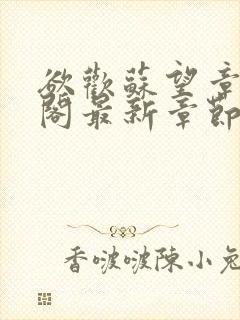 欲歡蘇望章
閣最新章節
香啵啵陳小兔